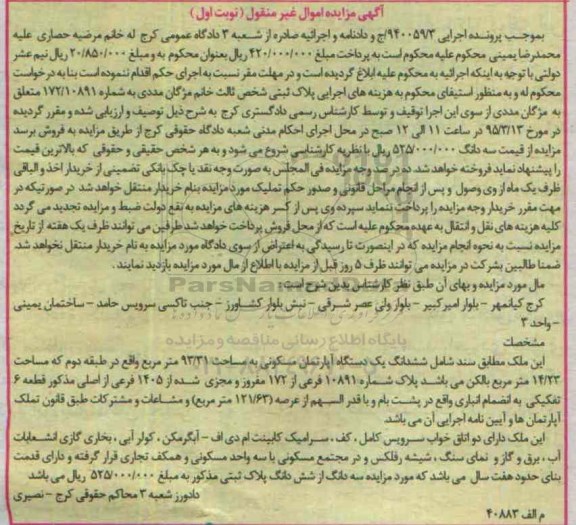 آگهی مزایده اموال غیر منقول ( نوبت اول )
بموجب پرونده اجرایی ۹۴۰۰۵۹/۳/ج و دادنامه و اجرائیه صادره از شعبه ۳ دادگاه عمومی کرج له خانم مرضیه حصاری علیه
محمدرضا یمینی محکوم علیه محکوم است به پرداخت مبلغ ۴۲۰/۰۰۰/۰۰۰ ریال بعنوان محکوم به و مبلغ ۲۰/۸۵۰/۰۰۰ ریال نیم عشر
دولتی با توجه به اینکه اجرائیه به محکوم علیه ابلاغ گردیده است و در مهلت مقرر نسبت به اجرای حکم اقدام ننموده است بنا به درخواست
محکوم له و به منظور استیفای محکوم به هزینه های اجرایی پلاک ثبتی شخص ثالث خانم مژگان مددی به شماره ۱۷۲/۱۰۸۹۱ متعلق
به مژگان مددی از سوی این اجرا توقیف و توسط کارشناس رسمی دادگستری کرج به شرح ذیل توصیف و ارزیابی شده و مقرر گردیده
در مورخ ۹۵/۳/۱۲ در ساعت ۱۱ الی ۱۲ صبح در محل اجرای احکام مدنی شعبه دادگاه حقوقی کرج از طریق مزایده به فروش برسد
مزایده از قیمت سه دانگ ۵۲۵/۰۰۰/۰۰۰ ریال با نظریه کارشناسی شروع می شود و به هر شخص حقیقی و حقوقی که بالاترین قیمت
را پیشنهاد نماید فروخته خواهد شد. ده درصد وجه مزایده فی المجلس به صورت وجه نقد یا چک بانکی تضمینی از خریدار اخذ و الباقی
ظرف یک ماه از وی وصول و پس از انجام مراحل قانونی و صدور حکم تملیک مورد مزایده بنام خریدار منتقل خواهد شد در صورتیکه در
مهت مقرر خریدار وجه مزایده را پرداخت ننماید سپرده وی پس از کسر هزینه های مزایده به نفع دولت ضبط و مزایده تجدید می گردد
کلیه هزینه های نقل و انتقال به عهده محکوم علیه است که از محل فروش پرداخت خواهد شد طرفین می توانند ظرف یک هفته از تاریخ
مزایده نسبت به نحوه انجام مزایده که در اینصورت تا رسیدگی به اعتراض از سوی دادگاه مورد مزایده به نام خریدار منتقل نخواهد شد.
ضمنا طالبین بشرکت در مزایده می توانند ظرف ۵ روز قبل از مزایده با اطلاع از مال مورد مزایده بازدید نمایند .
مال مورد مزایده و بهای آن طبق نظر کارشناس بدین شرح است:
کرج کیانمهر - بلوار امیرکبیر - بلوار ولی عصر شرقی - نبش بلوار کشاورز - جنب تاکسی سرویس حامد - ساختمان یمینی
- واحد ۳
مشخصات
این ملک مطابق سند شامل ششدانگ یک دستگاه آپارتمان مسکونی به مساحت ۹۳/۳۱ متر مربع واقع در طبقه دوم که مساحت
۱۴/۲۳ متر مربع بالکن می باشد پلاک شماره ۱۰۸۹۱ فرعی از ۱۷۲ مفروز و مجزی شده از ۱۴۰۵ فرعی از اصلی مذکور قطعه ۶
تفکیکی به انضمام انباری واقع در پشت بام و با قدر السهم از عرصه (۱۲۱/۶۳ متر مربع) و مشاعات و مشترکات طبق قانون تملک
آپارتمان ها و آیین نامه اجرایی آن می باشد.
این ملک دارای دو اتاق خواب سرویس کامل ، کف ، سرامیک کابینت ام دی اف - آبگرمکن ، کولر آبی ، بخاری گازی انشعابات
آب ، برق و گاز و نمای سنگ ، شیشه رفلکس و در مجتمع مسکونی با سه واحد مسکونی و همکف تجاری قرار گرفته و دارای قدمت
بنای حدود هفت سال می باشد که مورد مزایده سه دانگ از شش دانگ پلاک ثبتی مذکور به مبلغ ۵۲۵/۰۰۰/۰۰۰ ریال می باشد
دادورز شعبه ۳ محاکم حقوقی کرج - نصیری
م الف ۴۰۸۸۳